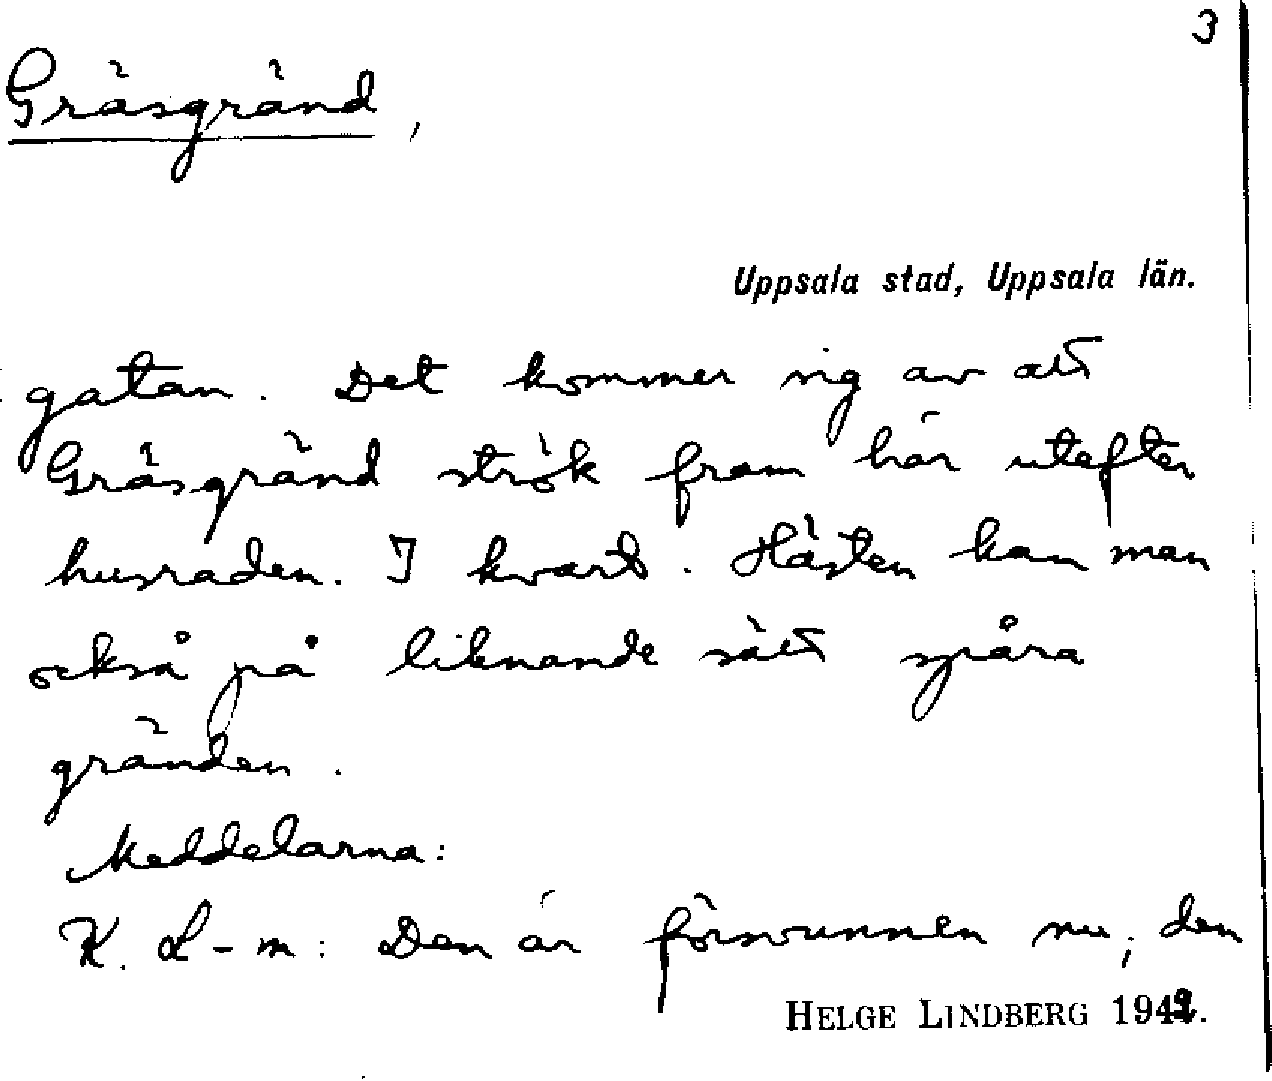 3
Gräsgränd,
Uppsala stad, Uppsala län.
gatan. Det kommer sig av att
Gräsgränd strök fram här utefter
husraden. I kvart. Hästen kan man
också på liknande sätt spåra
gränden.
Meddelarna:
K. L-m: Den är försvunnen nu; den
HELGE LINDBERG 1942.